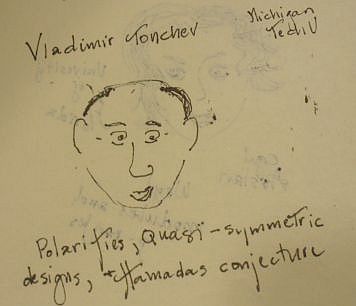 Vladimir Tonchev
Michigan
Tech U
Polarities, Quasi-symmetric
designs, + Hamadas conjecture